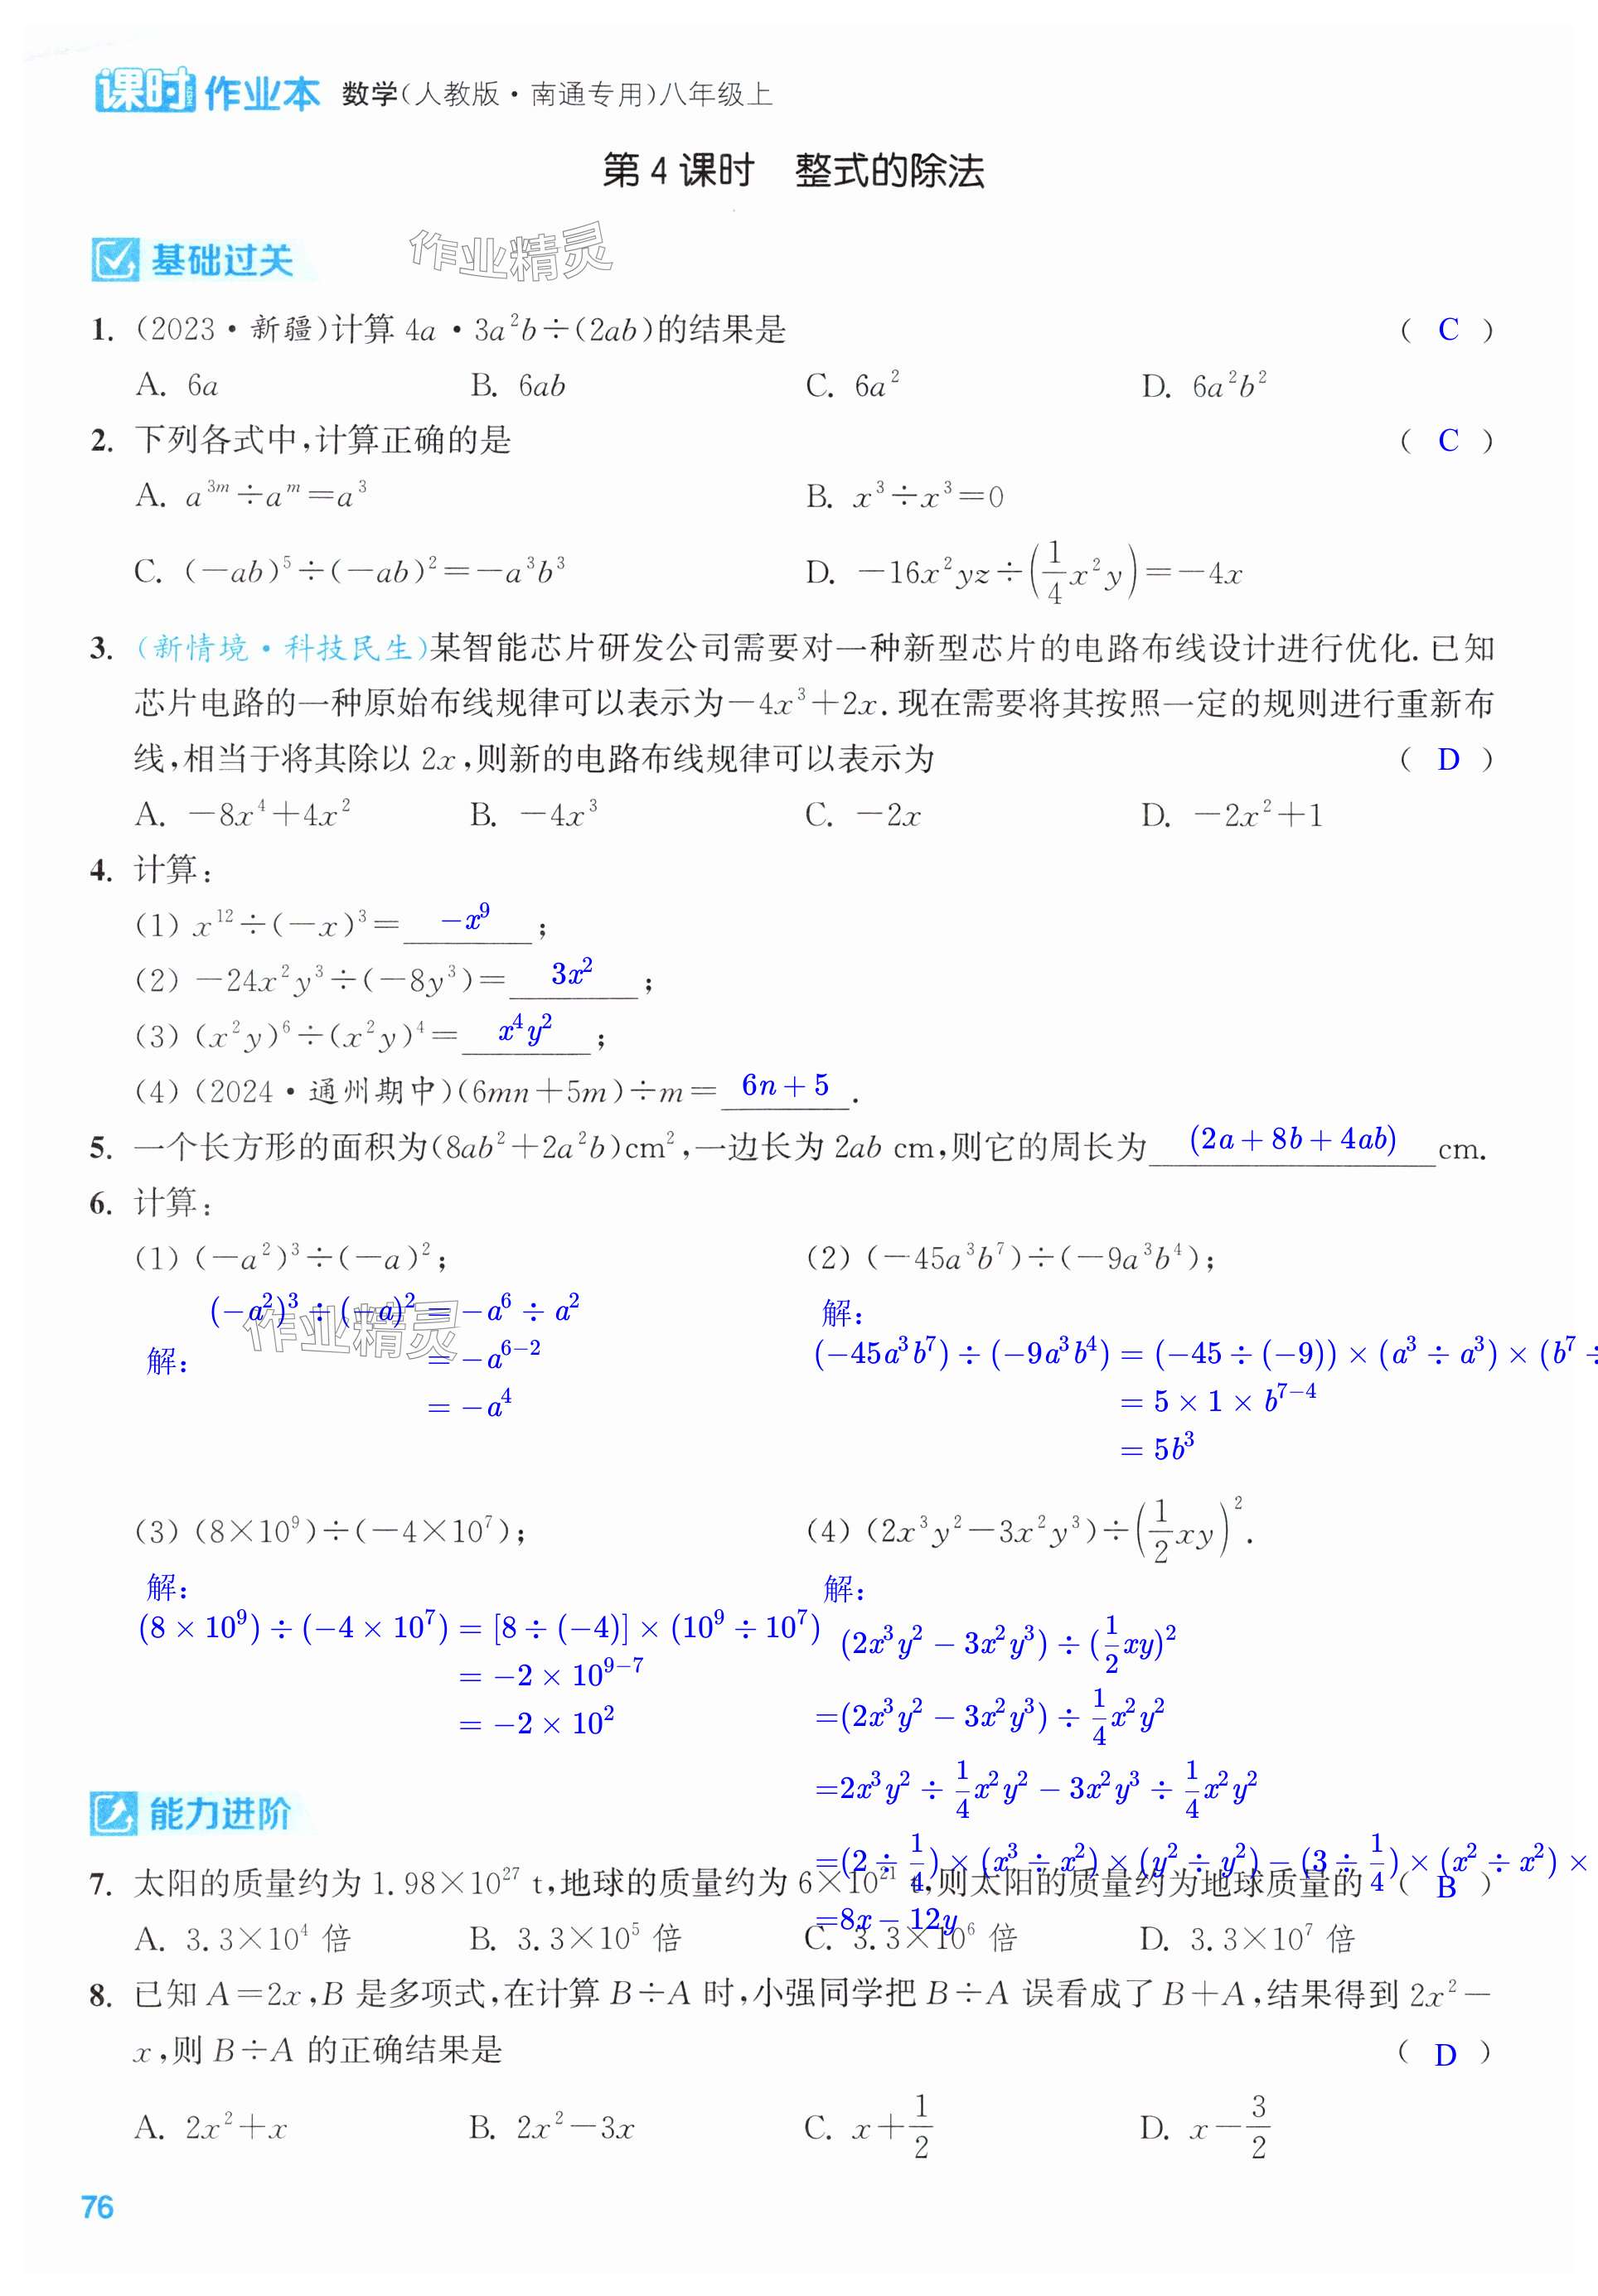 课时作业本 数学(人教版·南通专用)八年级上
第4课时 整式的除法
基础过关
作业精灵
1. (2023·新疆)计算 4a·3a²b÷(2ab)的结果是 ( C )
A. 6a B. 6ab C. 6a² D. 6a²b²
2. 下列各式中,计算正确的是 ( C )
A. a³ᵐ÷aᵐ=a³ B. x³÷x³=0
C. (-ab)⁵÷(-ab)²=-a³b³ D. -16x²yz÷(1/4 x²y)=-4x
3. (新情境·科技民生)某智能芯片研发公司需要对一种新型芯片的电路布线设计进行优化.已知
芯片电路的一种原始布线规律可以表示为-4x³+2x.现在需要将其按照一定的规则进行重新布
线,相当于将其除以 2x,则新的电路布线规律可以表示为 ( D )
A. -8x⁴+4x² B. -4x³ C. -2x D. -2x²+1
4. 计算:
(1) x¹²÷(-x)³= -x⁹ ;
(2) -24x²y³÷(-8y³)= 3x² ;
(3) (x²y)⁶÷(x²y)⁴= x⁴y² ;
(4) (2024·通州期中)(6mn+5m)÷m= 6n+5 .
5. 一个长方形的面积为(8ab²+2a²b)cm²,一边长为 2ab cm,则它的周长为 (2a+8b+4ab) cm.
6. 计算:
(1) (-a²)³÷(-a)²; (2) (-45a³b⁷)÷(-9a³b⁴);
作业精灵
解: (-a²)³÷(-a)²=-a⁶÷a²
=-a⁶⁻²
=-a⁴
解:
(-45a³b⁷)÷(-9a³b⁴)=(-45÷(-9))×(a³÷a³)×(b⁷÷
=5×1×b⁷⁻⁴
=5b³
(3) (8×10⁹)÷(-4×10⁷); (4) (2x³y²-3x²y³)÷(1/2 xy)².
解:
(8×10⁹)÷(-4×10⁷)=[8÷(-4)]×(10⁹÷10⁷)
=-2×10⁹⁻⁷
=-2×10²
解:
(2x³y²-3x²y³)÷(1/2 xy)²
=(2x³y²-3x²y³)÷1/4 x²y²
=2x³y²÷1/4 x²y²-3x²y³÷1/4 x²y²
=(2÷1/4)×(x³÷x²)×(y²÷y²)-(3÷1/4)×(x²÷x²)×
=8x-12y
能力进阶
7. 太阳的质量约为 1.98×10²⁷ t,地球的质量约为 6×10²¹ t,则太阳的质量约为地球质量的 ( B )
A. 3.3×10⁴ 倍 B. 3.3×10⁵ 倍 C. 3.3×10⁶ 倍 D. 3.3×10⁷ 倍
8. 已知 A=2x,B 是多项式,在计算 B÷A 时,小强同学把 B÷A 误看成了 B+A,结果得到 2x²-
x,则 B÷A 的正确结果是 ( D )
A. 2x²+x B. 2x²-3x C. x+1/2 D. x-3/2
76